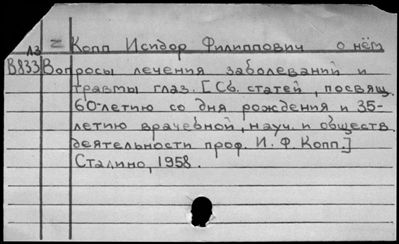 Копп Исидор Филиппович о нём
В833 Вопросы лечения заболеваний и
травмы глаз. [Сб. статей, посвящ.
60-летию со дня рождения и 35-
летию врачебной, науч. и обществ.
деятельности проф. И. Ф. Копп.]
Сталино, 1958.